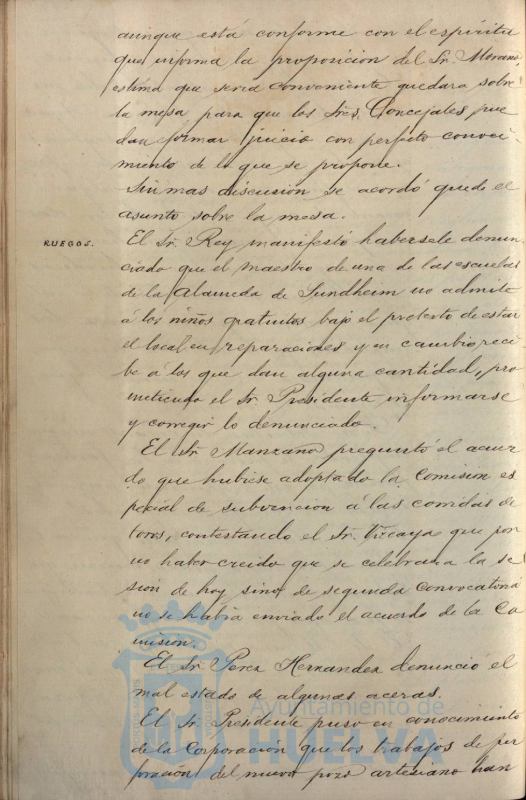 aunque está conforme con el espíritu
que informa la proposicion del Sr. Moreno,
estima que seria conveniente quedara sobre
la mesa para que los Sres. Concejales pue
dan formar juicio con perfecto conoci-
miento de lo que se propone.
Sin mas discusion se acordó quede el
asunto sobre la mesa.
RUEGOS.
El Sr. Rey manifestó habersele denun-
ciado que el maestro de una de las escuelas
de la Alameda de Sundheim no admite
á los niños gratuitos bajo el pretexto de estar
el local en reparaciones y en cambio reci
be á los que dan alguna cantidad, pro
metiendo el Sr. Presidente informarse
y corregir lo denunciado.
El Sr. Manzano preguntó el acuer
do que hubiese adoptado la Comision es
pecial de subvencion á las corridas de
toros, contestando el Sr. Vizcaya que por
no haber creido que se celebrara la se
sion de hoy sino de segunda convocatoria
no se habia enviado el acuerdo de la Co
mision.
El Sr. Perez Hernandez denunció el
mal estado de algunas aceras.
El Sr. Presidente puso en conocimiento
de la Corporacion que los trabajos de per
foracion del nuevo pozo artesiano han
Ayuntamiento de
HUELVA